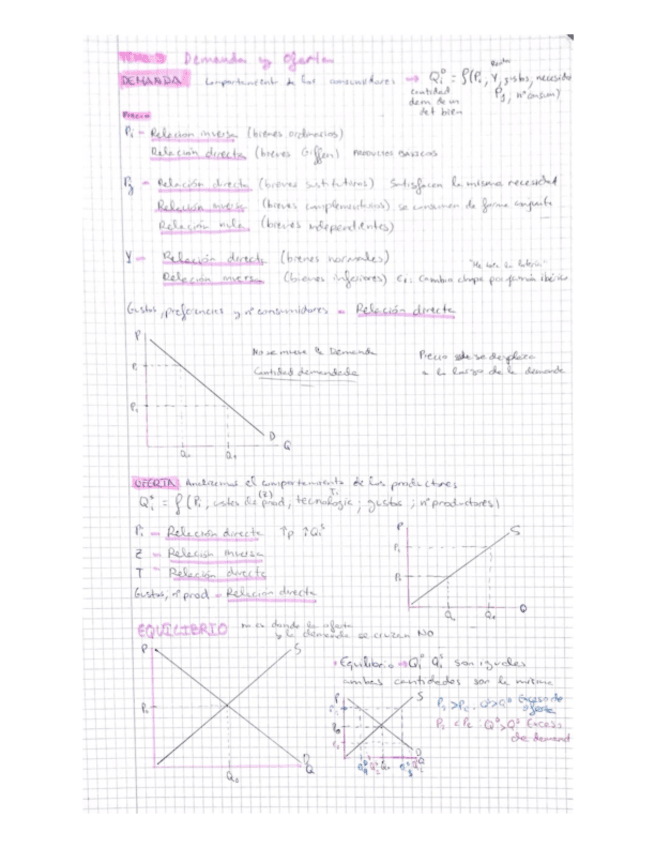 TEMA 3 Demanda y Oferta
DEMANDA Comportamiento de los consumidores → Qᵢᴰ = f(Pᵢ, Y, gustos, necesid
Renta
cantidad
Pj, nº consum)
dem de un
det bien
PRECIO
Pᵢ - Relación inversa (bienes ordinarios)
Relación directa (bienes Giffen) PRODUCTOS BÁSICOS
Pj - Relación directa (bienes sustitutivos) Satisfacen la misma necesidad
Relación inversa (bienes complementarios) se consumen de forma conjunta
Relación nula (bienes independientes)
Y - Relación directa (bienes normales)
Relación inversa (bienes inferiores) Ej: Cambio chopa por jamón ibérico
Gustos, preferencias y nº consumidores - Relación directa
P
No se mueve la Demanda
Cantidad demandada
Precio se desplaza
a lo largo de la demanda
D
Q
OFERTA Analizamos el comportamiento de los productores
Qᵢˢ = f(Pᵢ, costes de prod, tecnología; gustos; nº productores)
(Z)
Pᵢ - Relación directa ↑p ↑Qᵢˢ
Z - Relación inversa
T - Relación directa
Gustos, nº prod - Relación directa
P
S
Q
EQUILIBRIO no es donde la oferta
y la demanda se cruzan NO
P
S
P₀
Q₀
D
Q
Equilibrio → Qᵢᴰ Qᵢˢ son iguales
ambas cantidades son la misma
P
S
D
Q
P₁ > Pₑ. Qˢ>Qᴰ Exceso de
oferta
P₂ < Pₑ: Qᴰ>Qˢ Exceso
de demand